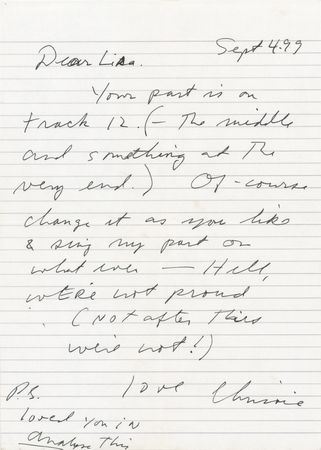 Sept 4.99
Dear Lisa.
Your part is on
track 12. (- The middle
and something at The
very end.) Of-course
change it as you like
& sing my part on
what ever — Hell,
we're not proud
(Not after this
we're not!)
love Chrissie
P.S.
loved you in
Analyse This